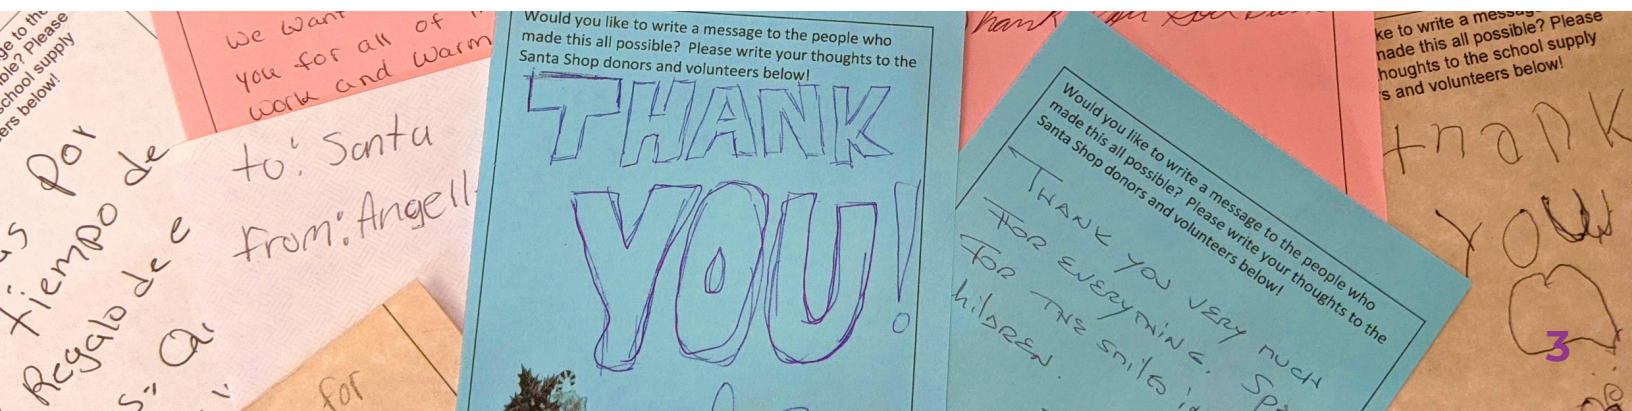 ge to the
ble? Please
school supply
ers below!
por
tiempo de
Regalo de
we want
you for all of
work and warm
to: Santa
From: Angell
for
Would you like to write a message to the people who
made this all possible? Please write your thoughts to the
Santa Shop donors and volunteers below!
THANK
YOU!
Would you like to write a message to the people who
made this all possible? Please write your thoughts to the
Santa Shop donors and volunteers below!
THANK YOU VERY MUCH
FOR EVERYTHING. Sp
FOR THE SMILES i
hildREN.
ke to write a message
made this all possible? Please
houghts to the school supply
s and volunteers below!
thank
You
3